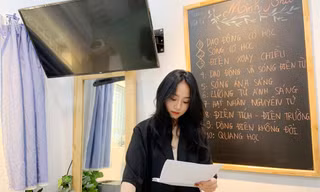 DAO ĐỘNG CƠ HỌC
SÓNG CƠ HỌC
ĐIỆN XOAY CHIỀU
4. DAO ĐỘNG VÀ SÓNG ĐIỆN TỪ
5. SÓNG ÁNH SÁNG
6. LƯỢNG TỬ ÁNH SÁNG
7. HẠT NHÂN NGUYÊN TỬ
8. ĐIỆN TÍCH - ĐIỆN TRƯỜNG
9. DÒNG ĐIỆN KHÔNG ĐỔI
10. QUANG HỌC